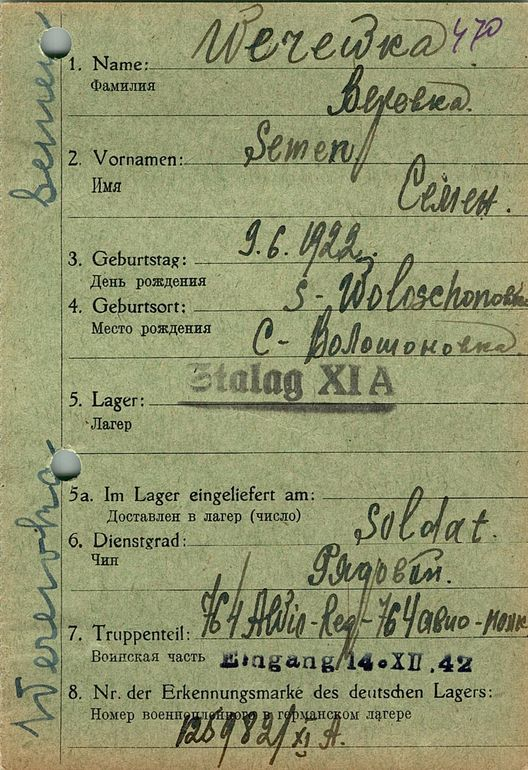 Werewka 470
1. Name:
Фамилия
Веревка.
2. Vornamen: Semen
Имя
Семен.
3. Geburtstag: 9.6.1922.
День рождения
4. Geburtsort: S-Woloschonowka
Место рождения
С-Волошоновка.
Stalag XI A
5. Lager:
Лагер
5a. Im Lager eingeliefert am:
Доставлен в лагер (число)
6. Dienstgrad: Soldat.
Чин
Рядовой.
7. Truppenteil: 764 -Reg-764 авио-полк
Воинская часть Eingang 14. XII. 42
8. Nr. der Erkennungsmarke des deutschen Lagers:
Номер военнопленного в германском лагере
126982/XI A.
Werewka
Semen